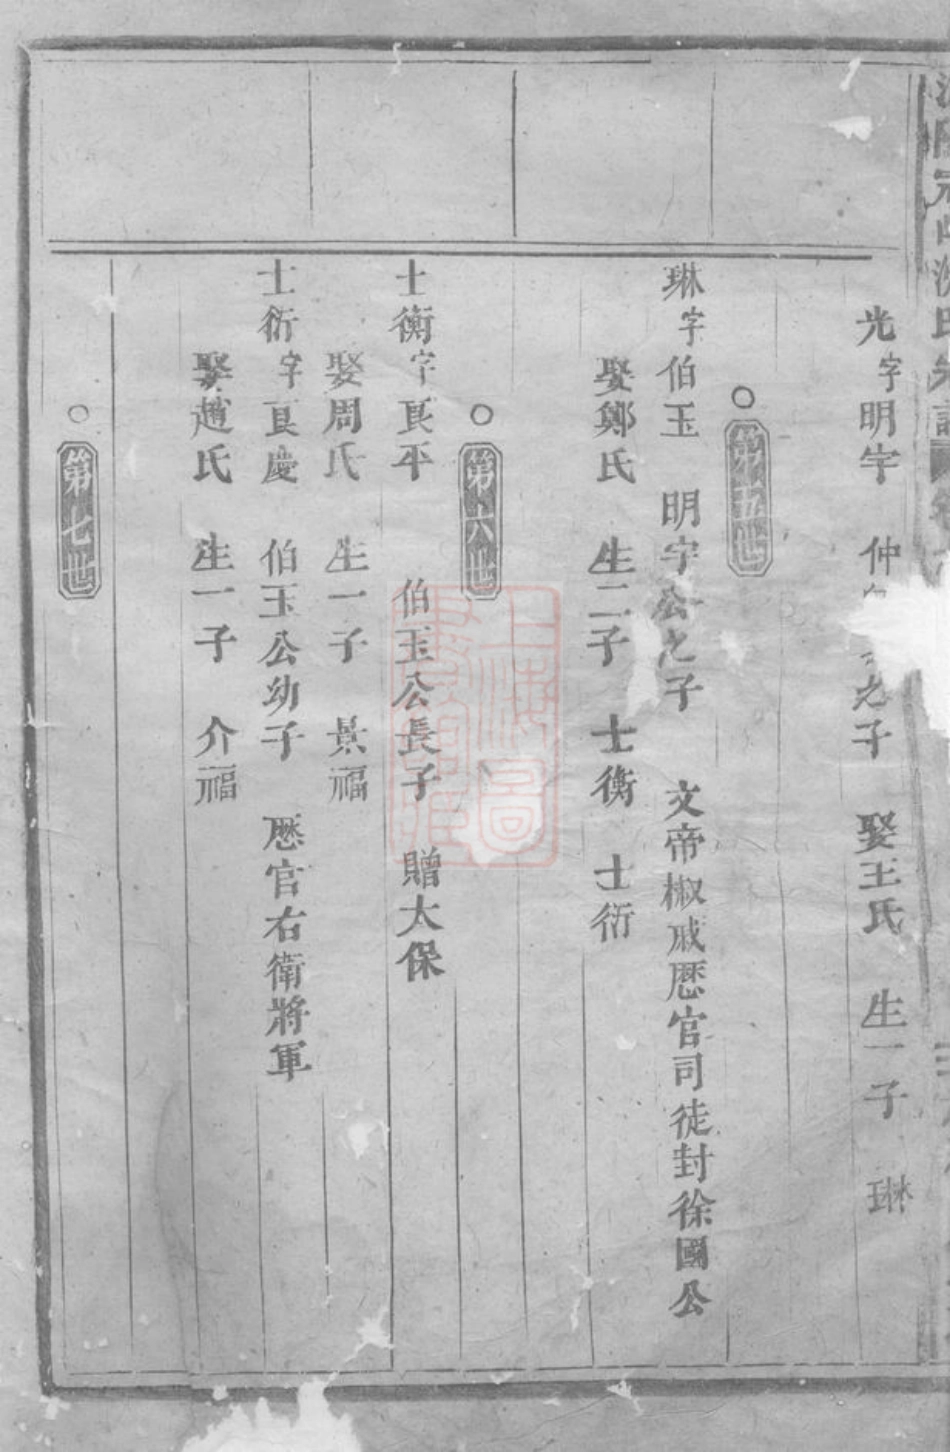 光字明宇 仲 之子 娶王氏 生一子 琳
○第五世
琳字伯玉 明宇公之子 文帝椒戚厯官司徒封徐國公
娶鄭氏 生二子 士衡 士衍
○第六世
士衡字良平 伯玉公長子 贈太保
娶周氏 生一子 景福
士衍字良慶 伯玉公幼子 厯官右衛將軍
娶趙氏 生一子 介福
○第七世
上海圖